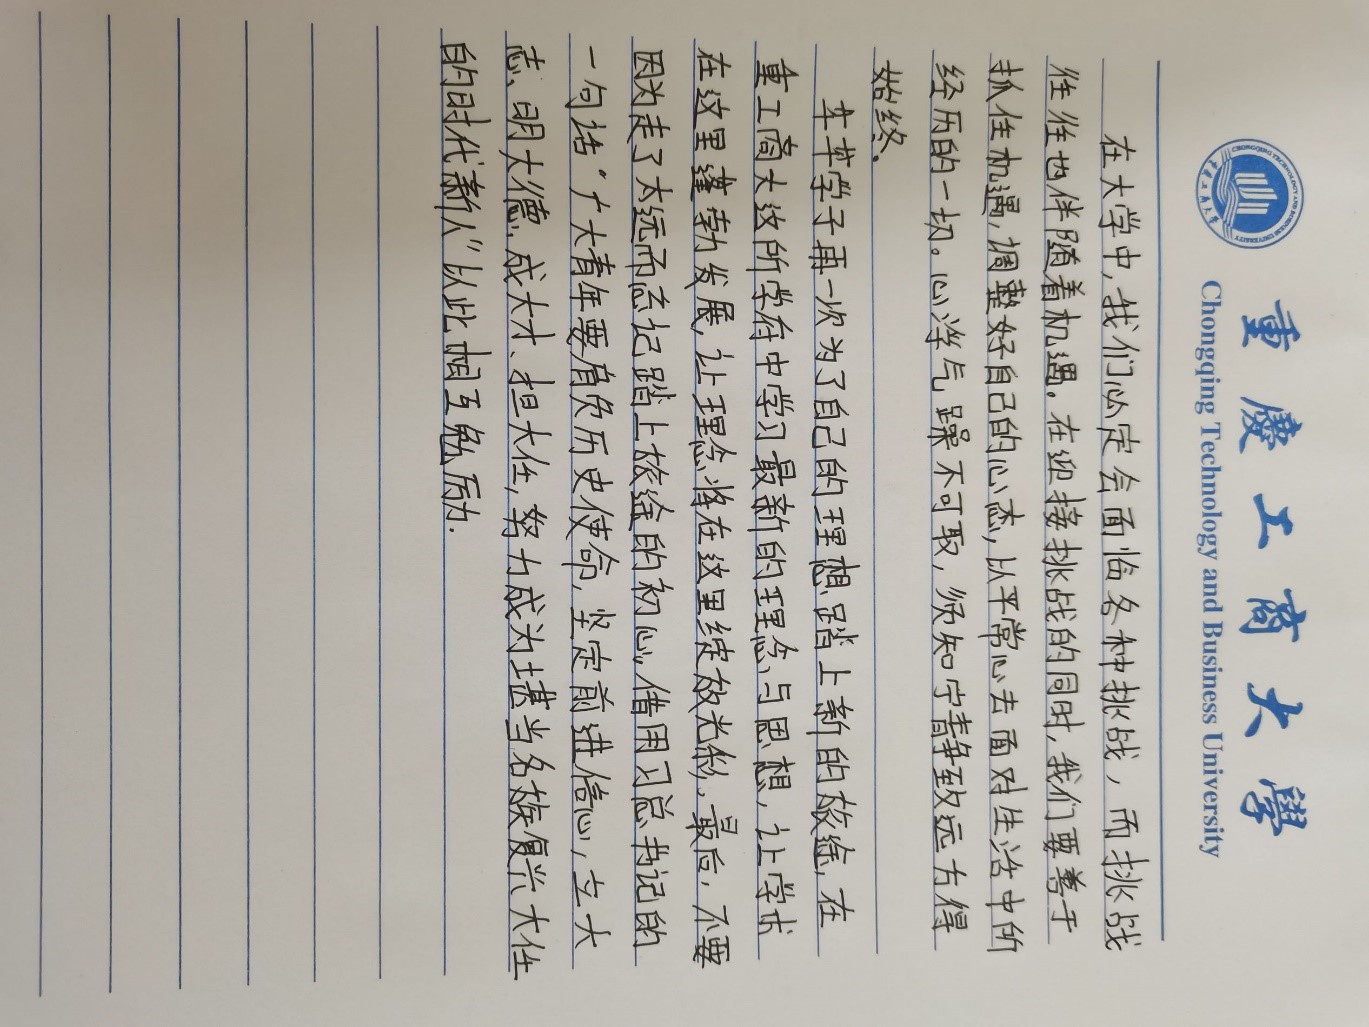 重庆工商大学
Chongqing Technology and Business University
在大学中,我们必定会面临各种挑战,而挑战
往往也伴随着机遇。在迎接挑战的同时,我们要善于
抓住机遇,调整好自己的心态,以平常心去面对生活中所
经历的一切。心浮气躁不可取,须知宁静致远方得
始终.
莘莘学子再一次为了自己的理想踏上新的旅途,在
重工商大这所学府中学习最新的理念与思想,让学术
在这里蓬勃发展,让理念将在这里绽放光彩,最后,不要
因为走了太远而忘记踏上旅途的初心,借用习总书记的
一句话“广大青年要肩负历史使命,坚定前进信心,立大
志、明大德、成大才、担大任,努力成为堪当名族复兴大任
的时代新人”以此相互勉励.